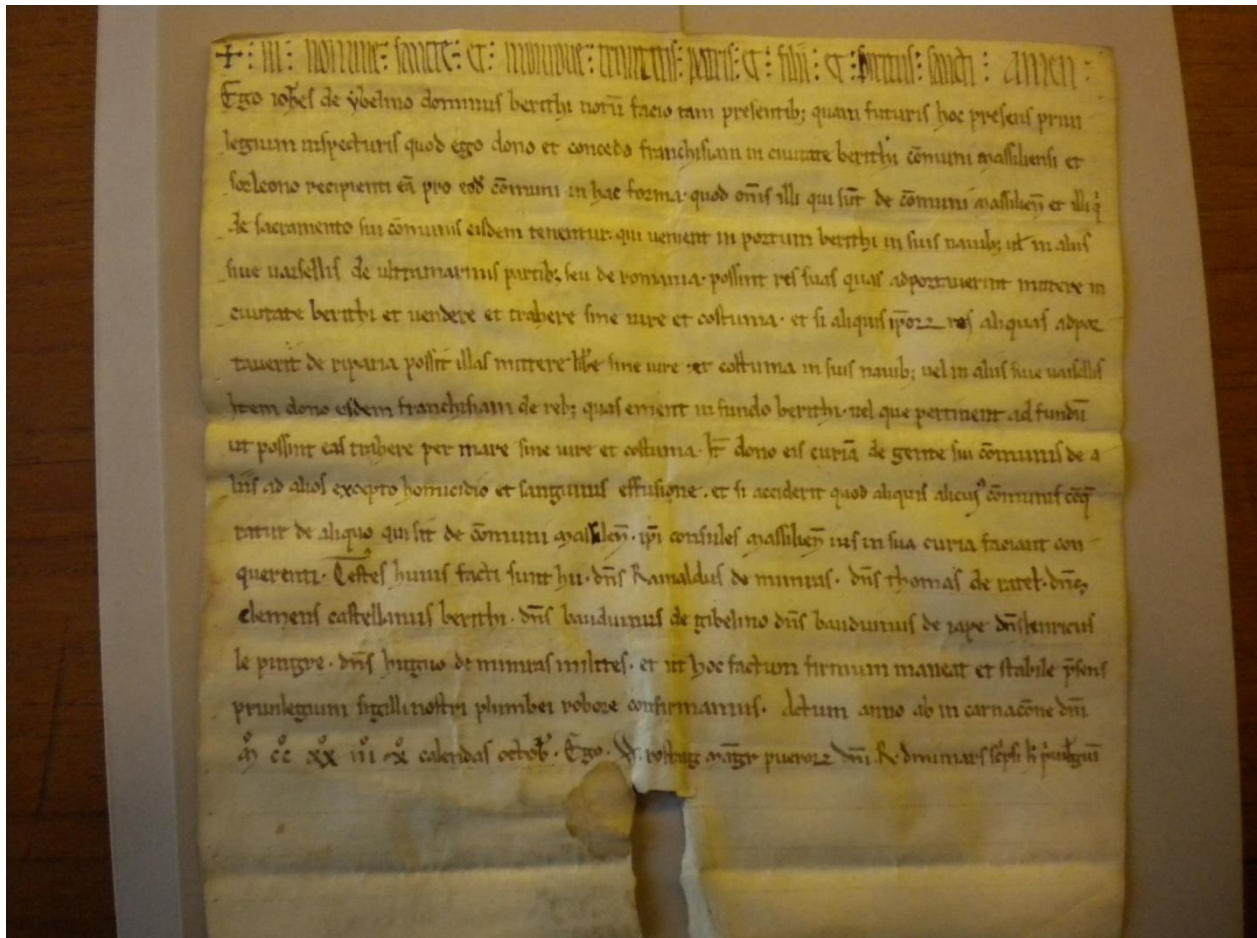 + : in : nomine : sancte : et : individue : trinitatis : patris : et : filii : et : spiritus : sancti : amen :
Ego ioħes de ẏbelino dominus berithi notū facio tam presentib; quam futuris hoc presens priui
legium inspecturis quod ego dono et concedo franchisiam in ciuitate berithi cōmuni Massiliensi et
recipienti eā pro eod cōmuni in hac forma · quod om̄s illi qui sūt de cōmuni Massilieñ et illi q̇
de sacramento sui cōmunis eisdem tenentur · qui uenient in portum berithi in suis nauib; ul̄ in aliis
siue uassellis de ultramarinis partib; seu de romania · possint res suas quas adportauerint mittere in
ciuitate berithi et uendere et trahere sine iure et costuma · et si aliquis ip̄oꝝ res aliquas adpor
tauerit de riparia possit illas mittere lib̄e sine iure · et costuma in suis nauib; uel in aliis siue uassellis
Item dono eisdem franchisiam de reb; quas ement in fundo berithi · uel que pertinent ad fundū
ut possint eas trahere per mare sine iure et costuma · It̄ dono eis curiā de gente sui cōmunis de a
liis ad alios excepto homicidio et sanguinis effusione · et si acciderit quod aliquis alicuiꝰ cōmunis cōq̄
ratur de aliquo qui sit de cōmuni Massilieñ · ip̄i consules Massilieñ ius in sua curia faciant con
querenti · Testes huius facti sunt hii · dn̄s Rainaldus de mimars · dn̄s thomas de ratel · dn̄s
clemens castellanus berithi · dn̄s bauduinus de gibelino dn̄s bauduinus de iape dn̄s henricus
le pingre · dn̄s huguo de mimars milites · et ut hoc factum firmum maneat et stabile p̄sens
priuilegium sigilli nostri plumbei robore confirmamus · Actum anno ab incarnacōne dn̄i
M̊ c̊c̊ x̊x̊ iii x̊ calendas octob̄ · Ego · rostag mag̅r pueroꝝ dn̄i · R · d mimars sc̄psi h̄ p̄uilegiū